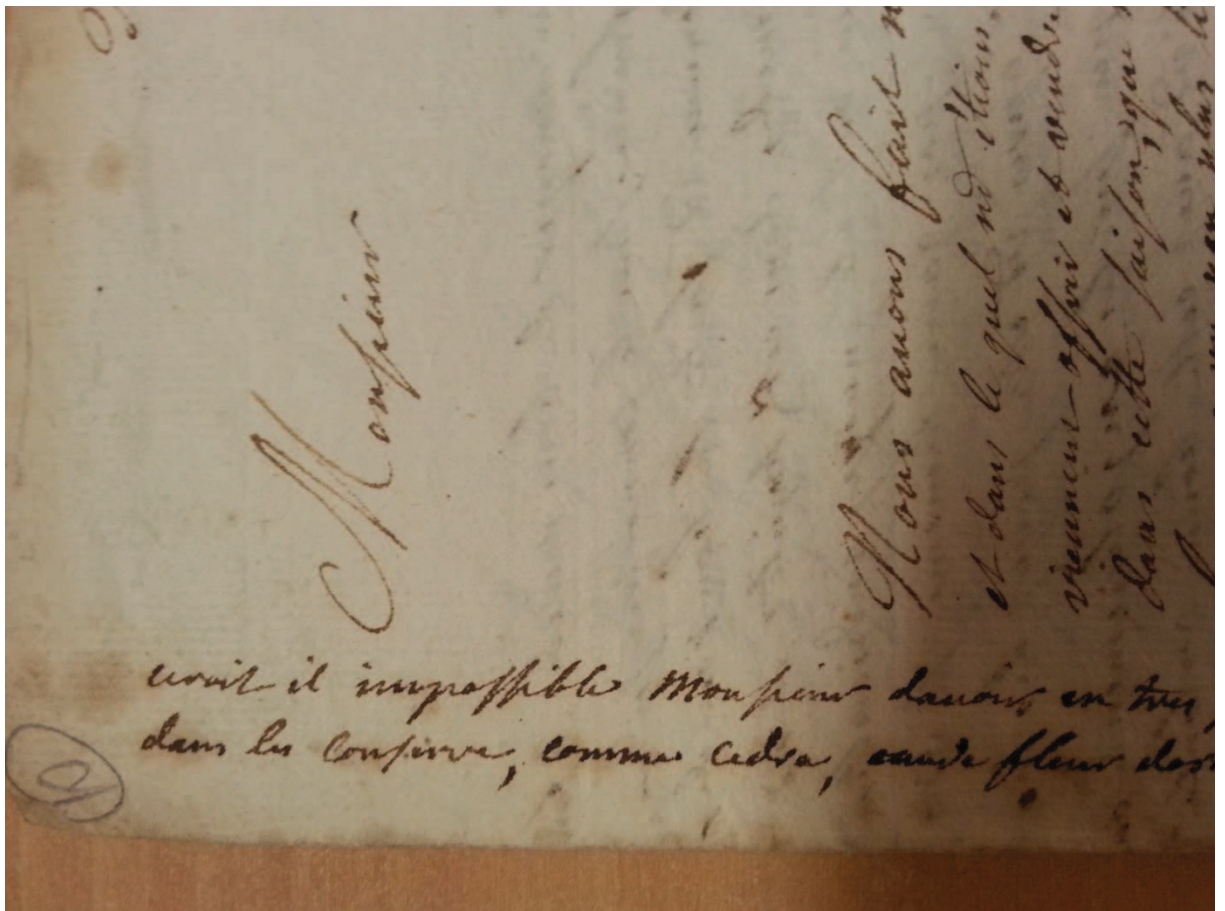 Monsieur
Nous avons fait
et dans le quel nd étions
viennent offrir et vendre
dans cette saison, que
plus
eroit il impossible Monsieur davoir en tres
dans les conserve, comme Cedra, eaude fleur
10